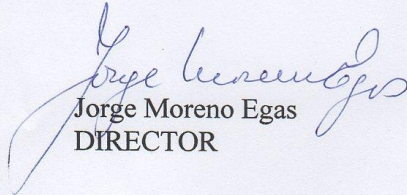 Jorge Moreno Egas
Jorge Moreno Egas
DIRECTOR